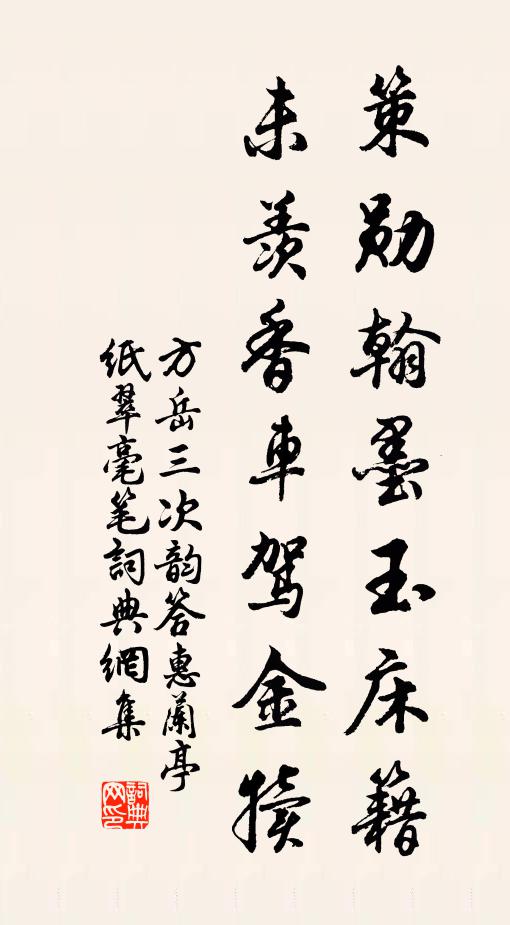 策勋翰墨玉床籍
未羨香車駕金犢
方岳三次韵答惠蘭亭
紙翠毫笔詞典網集
詞典网印